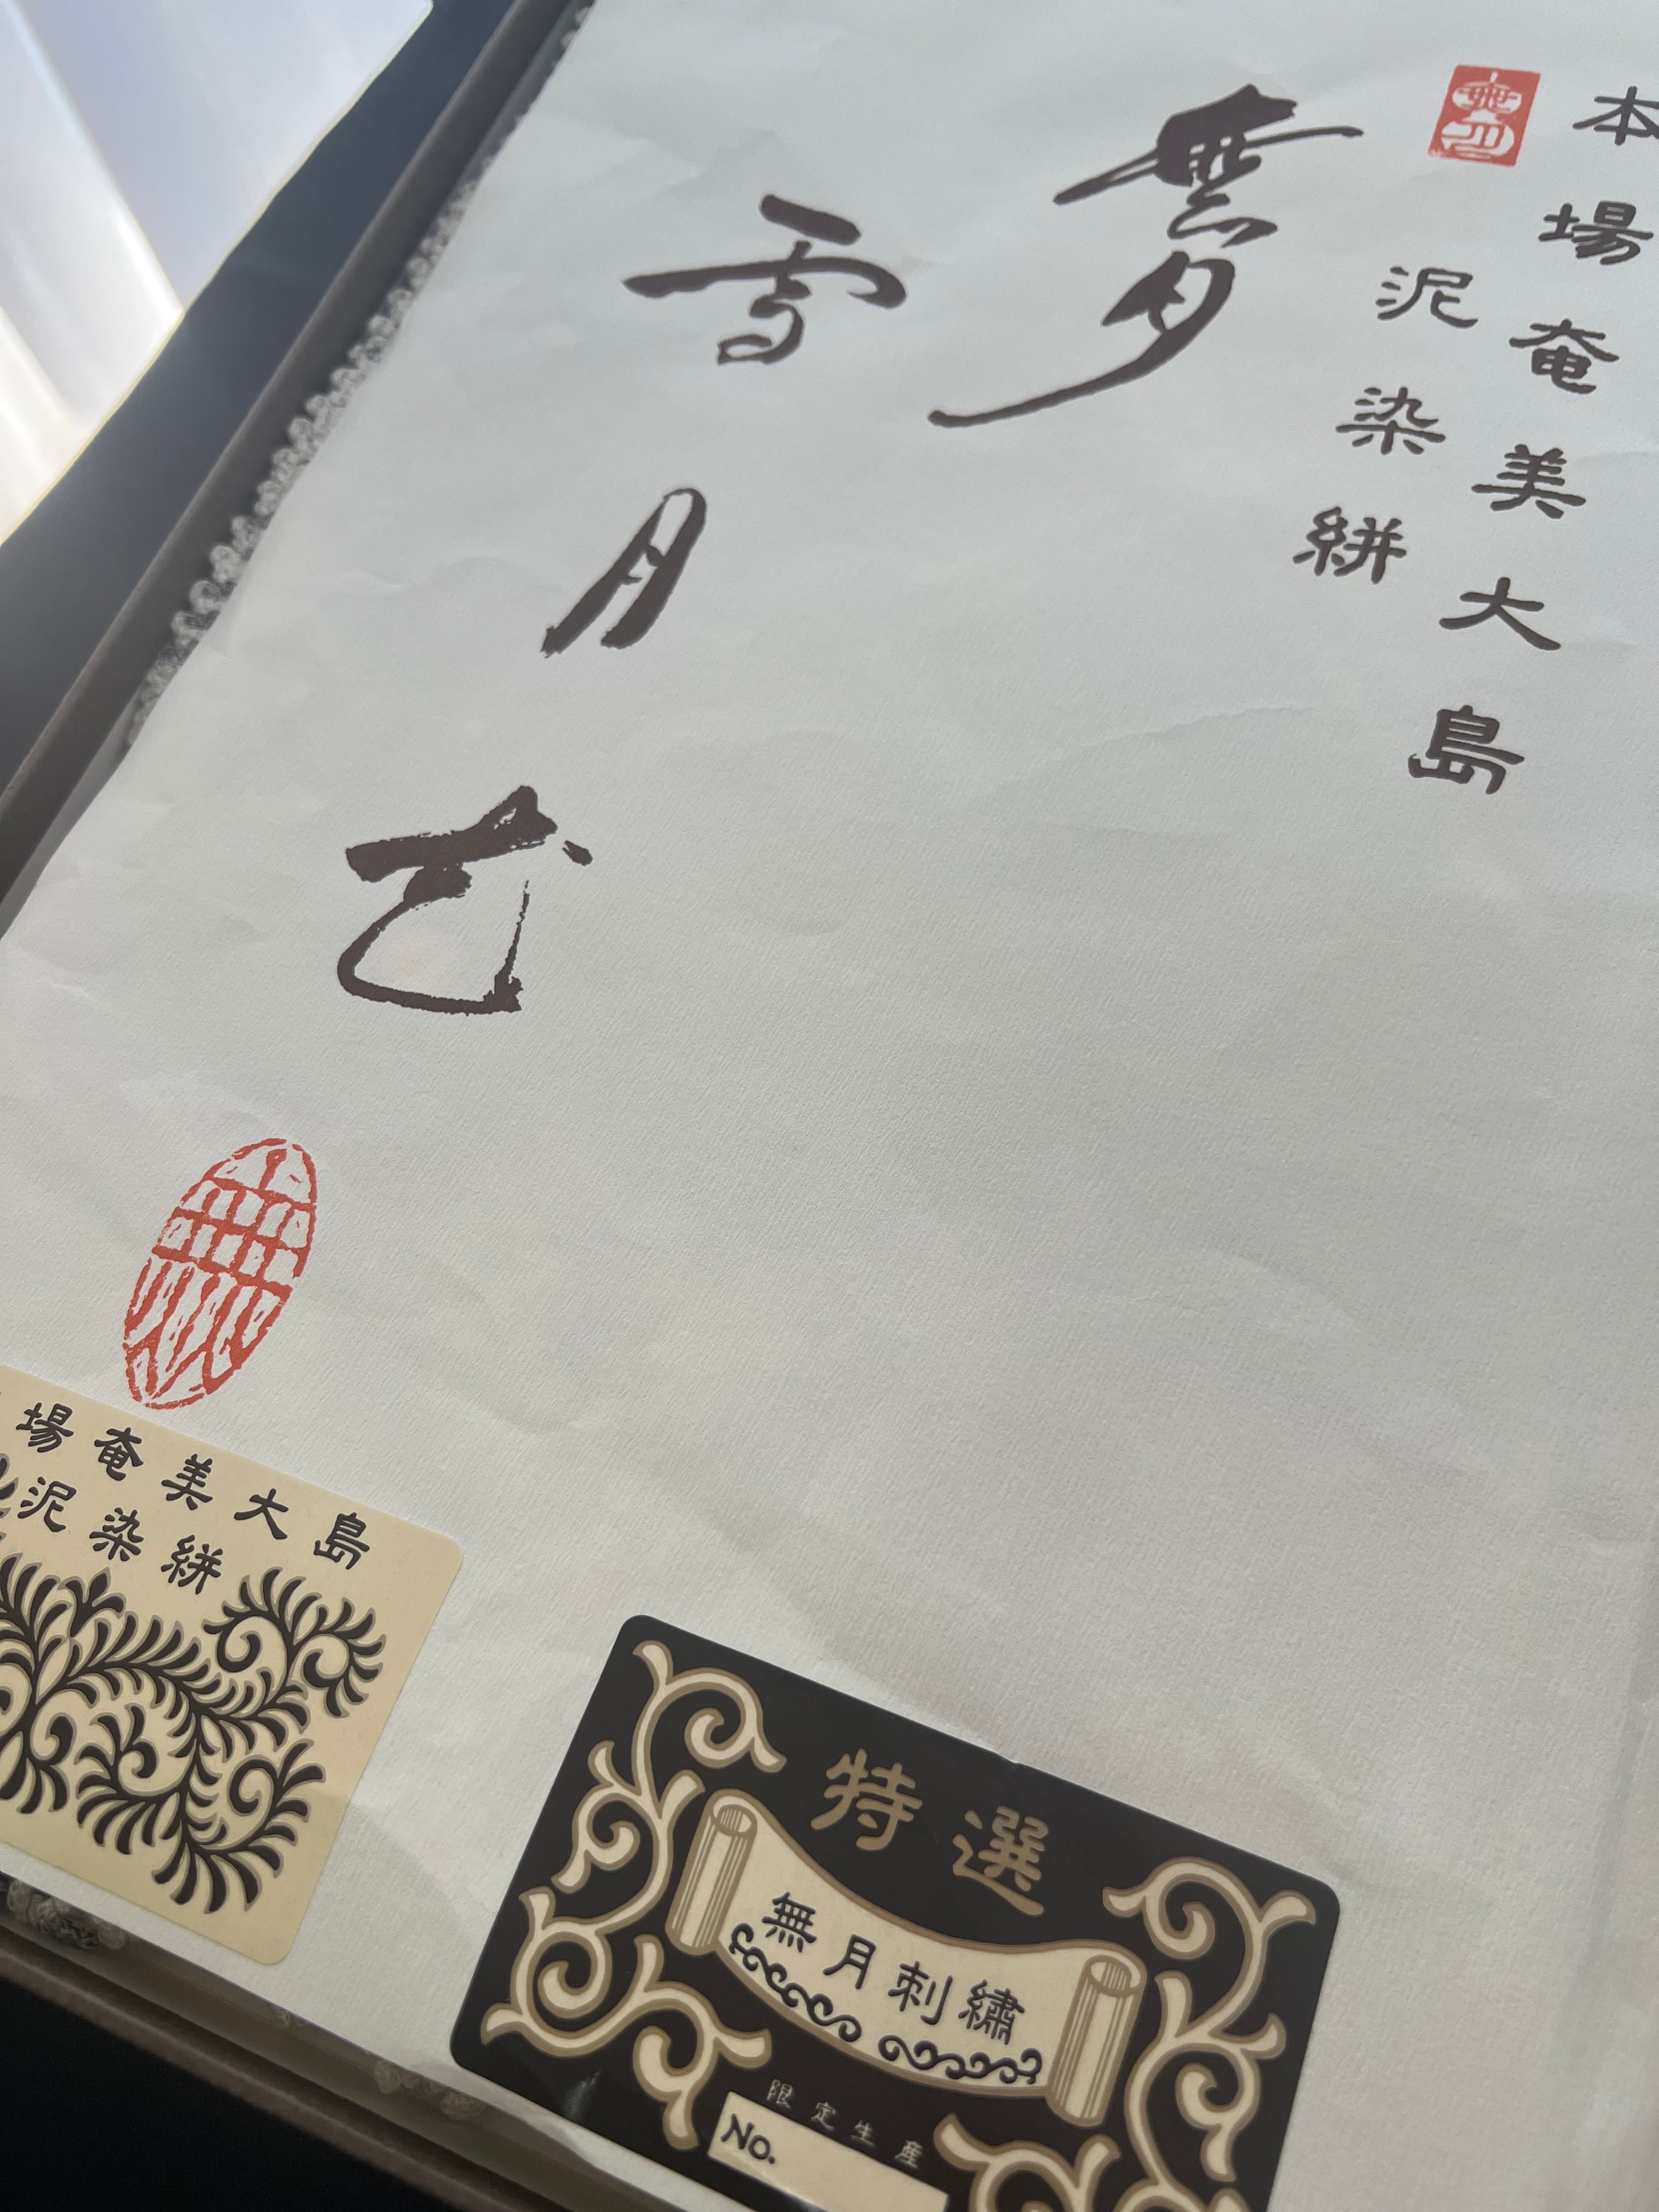 本場奄美大島
泥染絣
無月
雪月花
無
場奄美大島
泥染絣
特選
無月刺繍
限定生産
No.